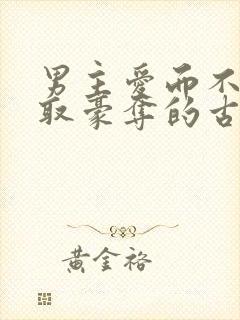 男主爱而不
取豪夺的古
黄金裕